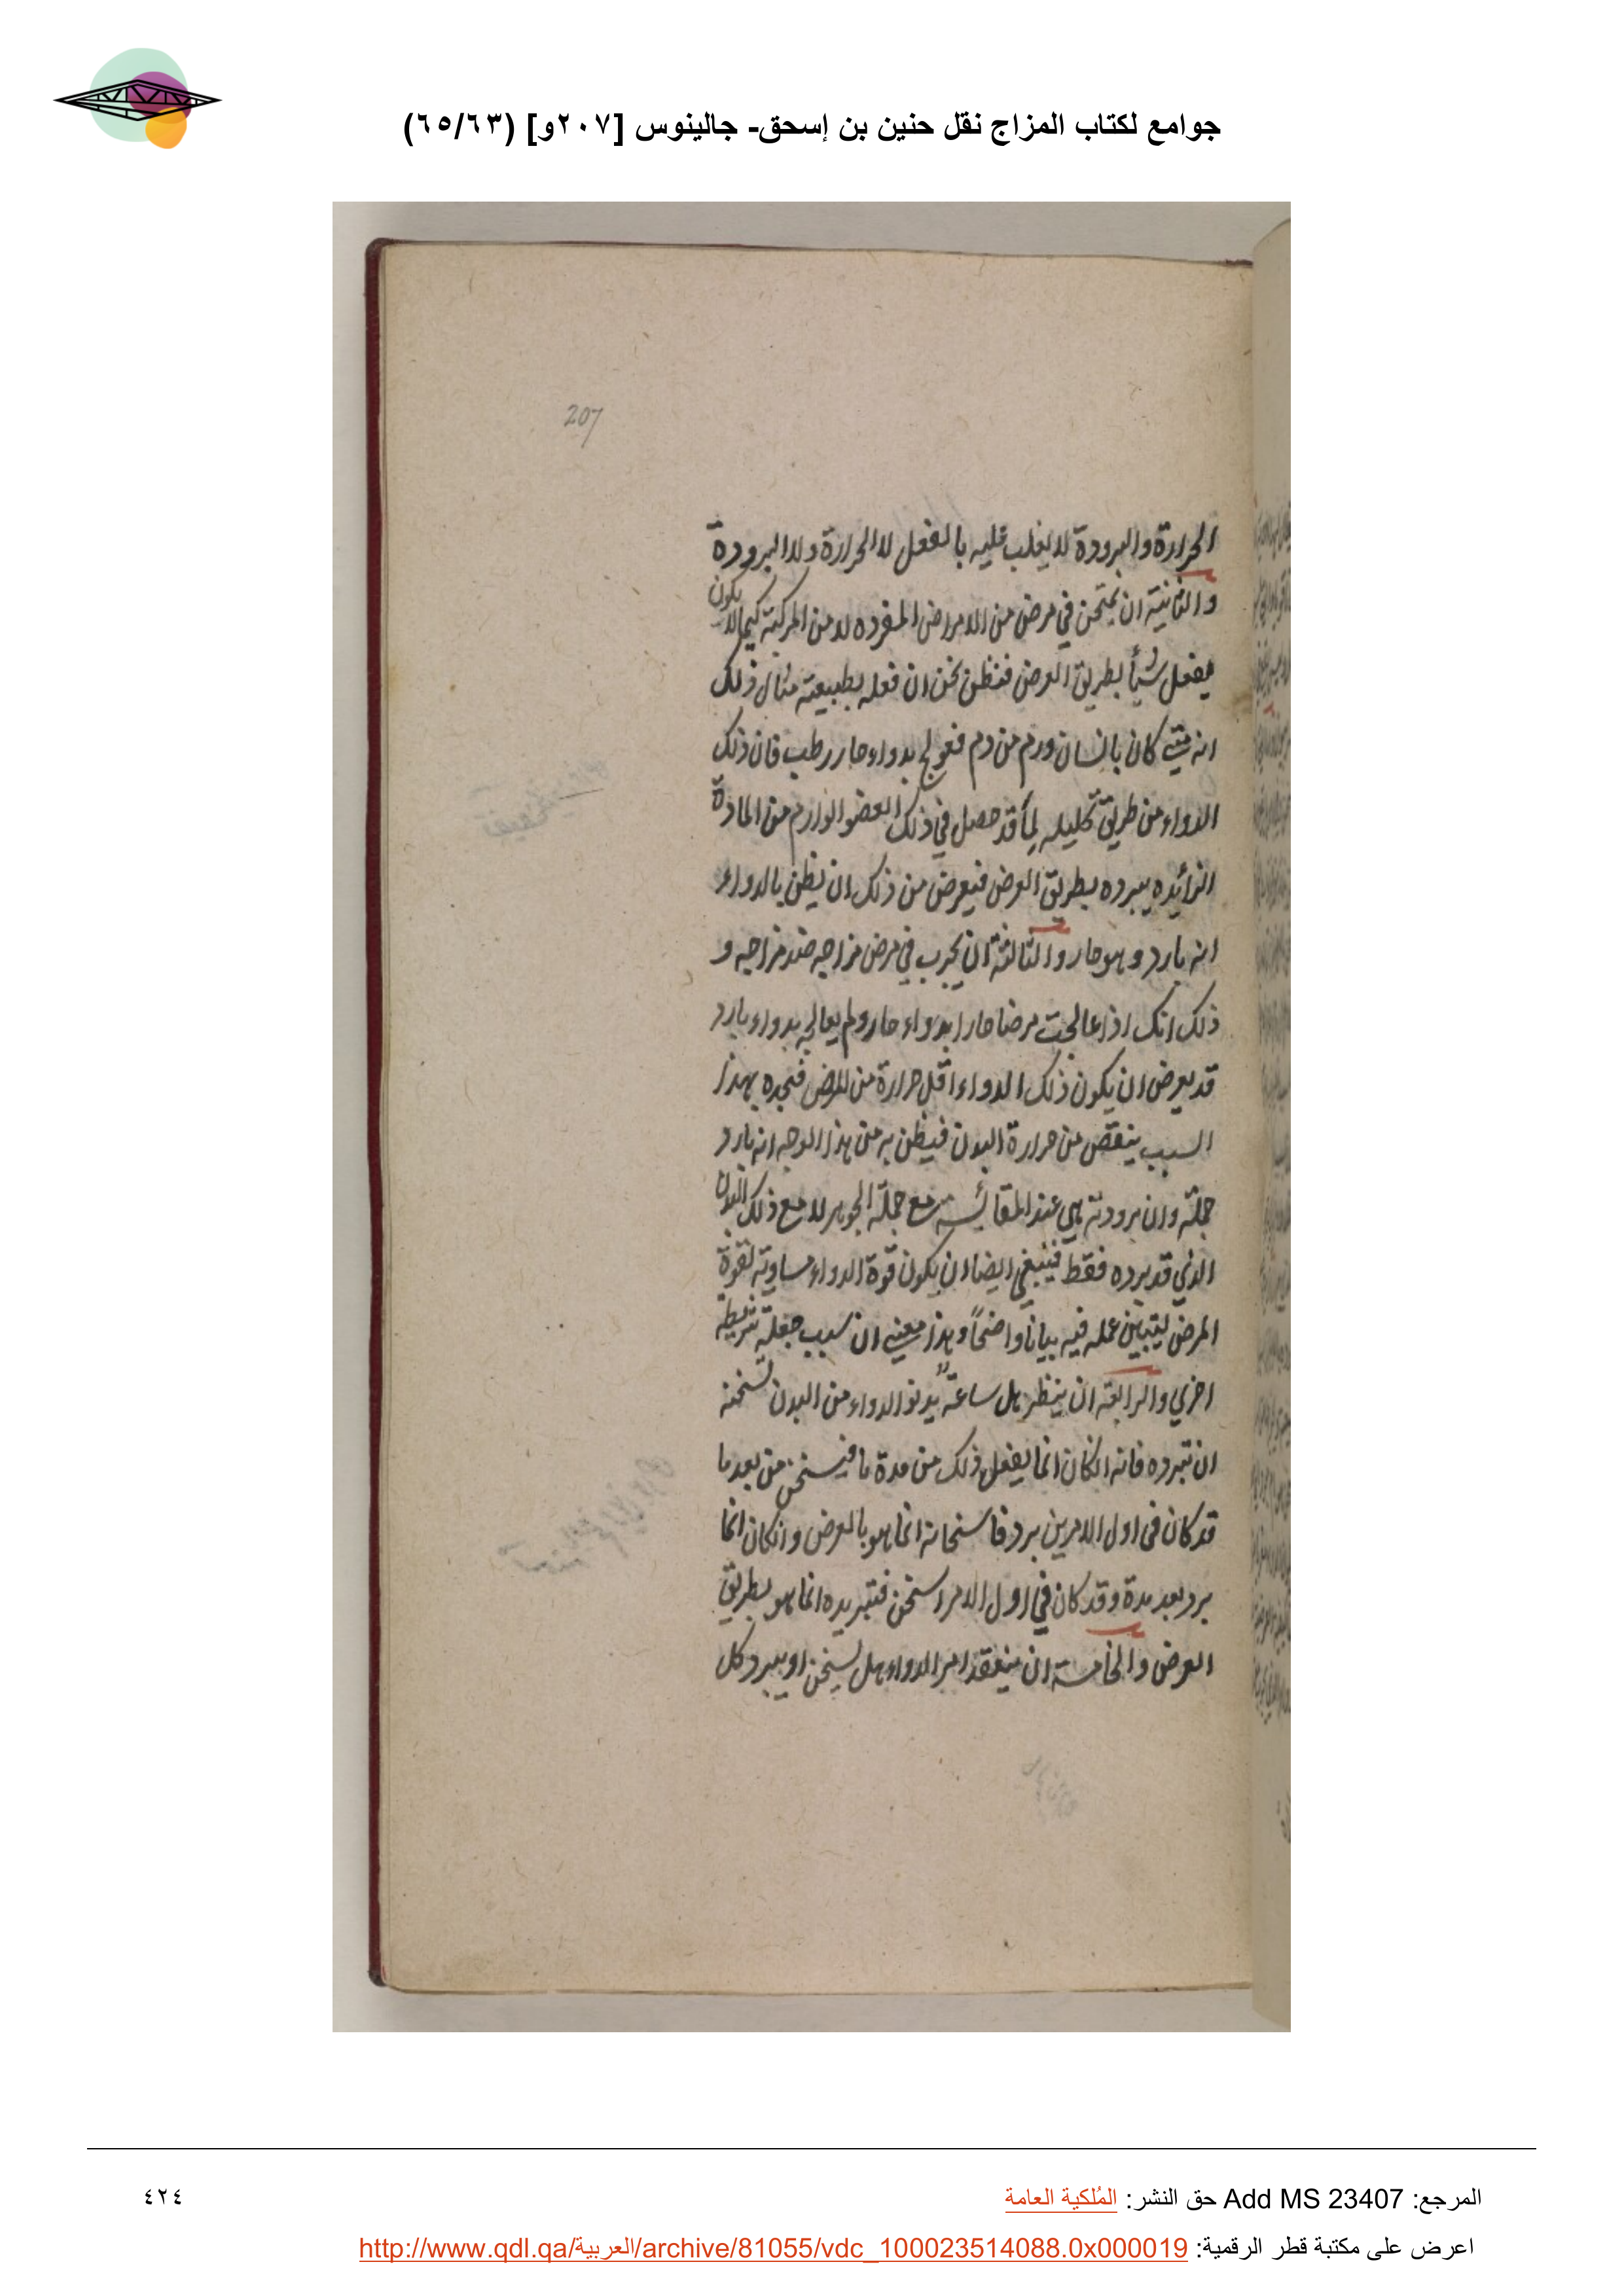 جوامع لكتاب المزاج نقل حنين بن إسحق- جالينوس [٢٠٧و] (٦٥/٦٣)
207
الحرارة والبرودة لا يغلب عليه بالفعل لا الحرارة ولا البرودة
والثانية ان يمتحن في مرض من الامراض المفرده لا من المركبة كيما لا يكون
يفعل شيأ بطريق العرض فنظن نحن ان فعله بطبيعته مثال ذلك
انه متى كان بانسان ورم من دم فعولج بدواء حار رطب فان ذلك
الدواء من طريق تحليله لما قد حصل في ذلك العضو الوارم من المادة
الزائده يبرده بطريق العرض فيعرض من ذلك ان يظن بالدواء
انه بارد وهو حار والثالثة ان يجرب في مرض مزاجه ضد مزاجه و
ذلك انك اذا عالجت مرضا حارا بدواء حار ولم يعالجه بدواء بارد
قد يعرض ان يكون ذلك الدواء اقل حرارة من المرض فنجده بهذا
السبب ينقص من حرارة البدن فيظن به من هذا الوجه انه بارد
جملة وان برودته هي عند المقائسه مع جملة الجوهر لا مع ذلك البدن
الذي قد برده فقط فينبغي ايضا ان يكون قوة الدواء مساوية لقوة
المرض ليتبين عمله فيه بيانا واضحاً وهذا معنى ان سبب جعله شريطة
اخري والرابعة ان ينظر هل ساعة يدنو الدواء من البدن تسخنه
ان تبرده فانه انكان انما يفعل ذلك من مدة ما فيسخن من بعد ما
قد كان في اول الامرين برد فاسخانه انما هو بالعرض وانكان انما
برد بعد مدة وقد كان في اول الامر اسخن فتبريده انما هو بطريق
العرض والخامسة ان ينفقد امر الدواء هل يسخن او يبرد كل
المرجع: Add MS 23407 حق النشر: المُلكية العامة
٤٢٤
اعرض على مكتبة قطر الرقمية: http://www.qdl.qa/العربية/archive/81055/vdc_100023514088.0x000019